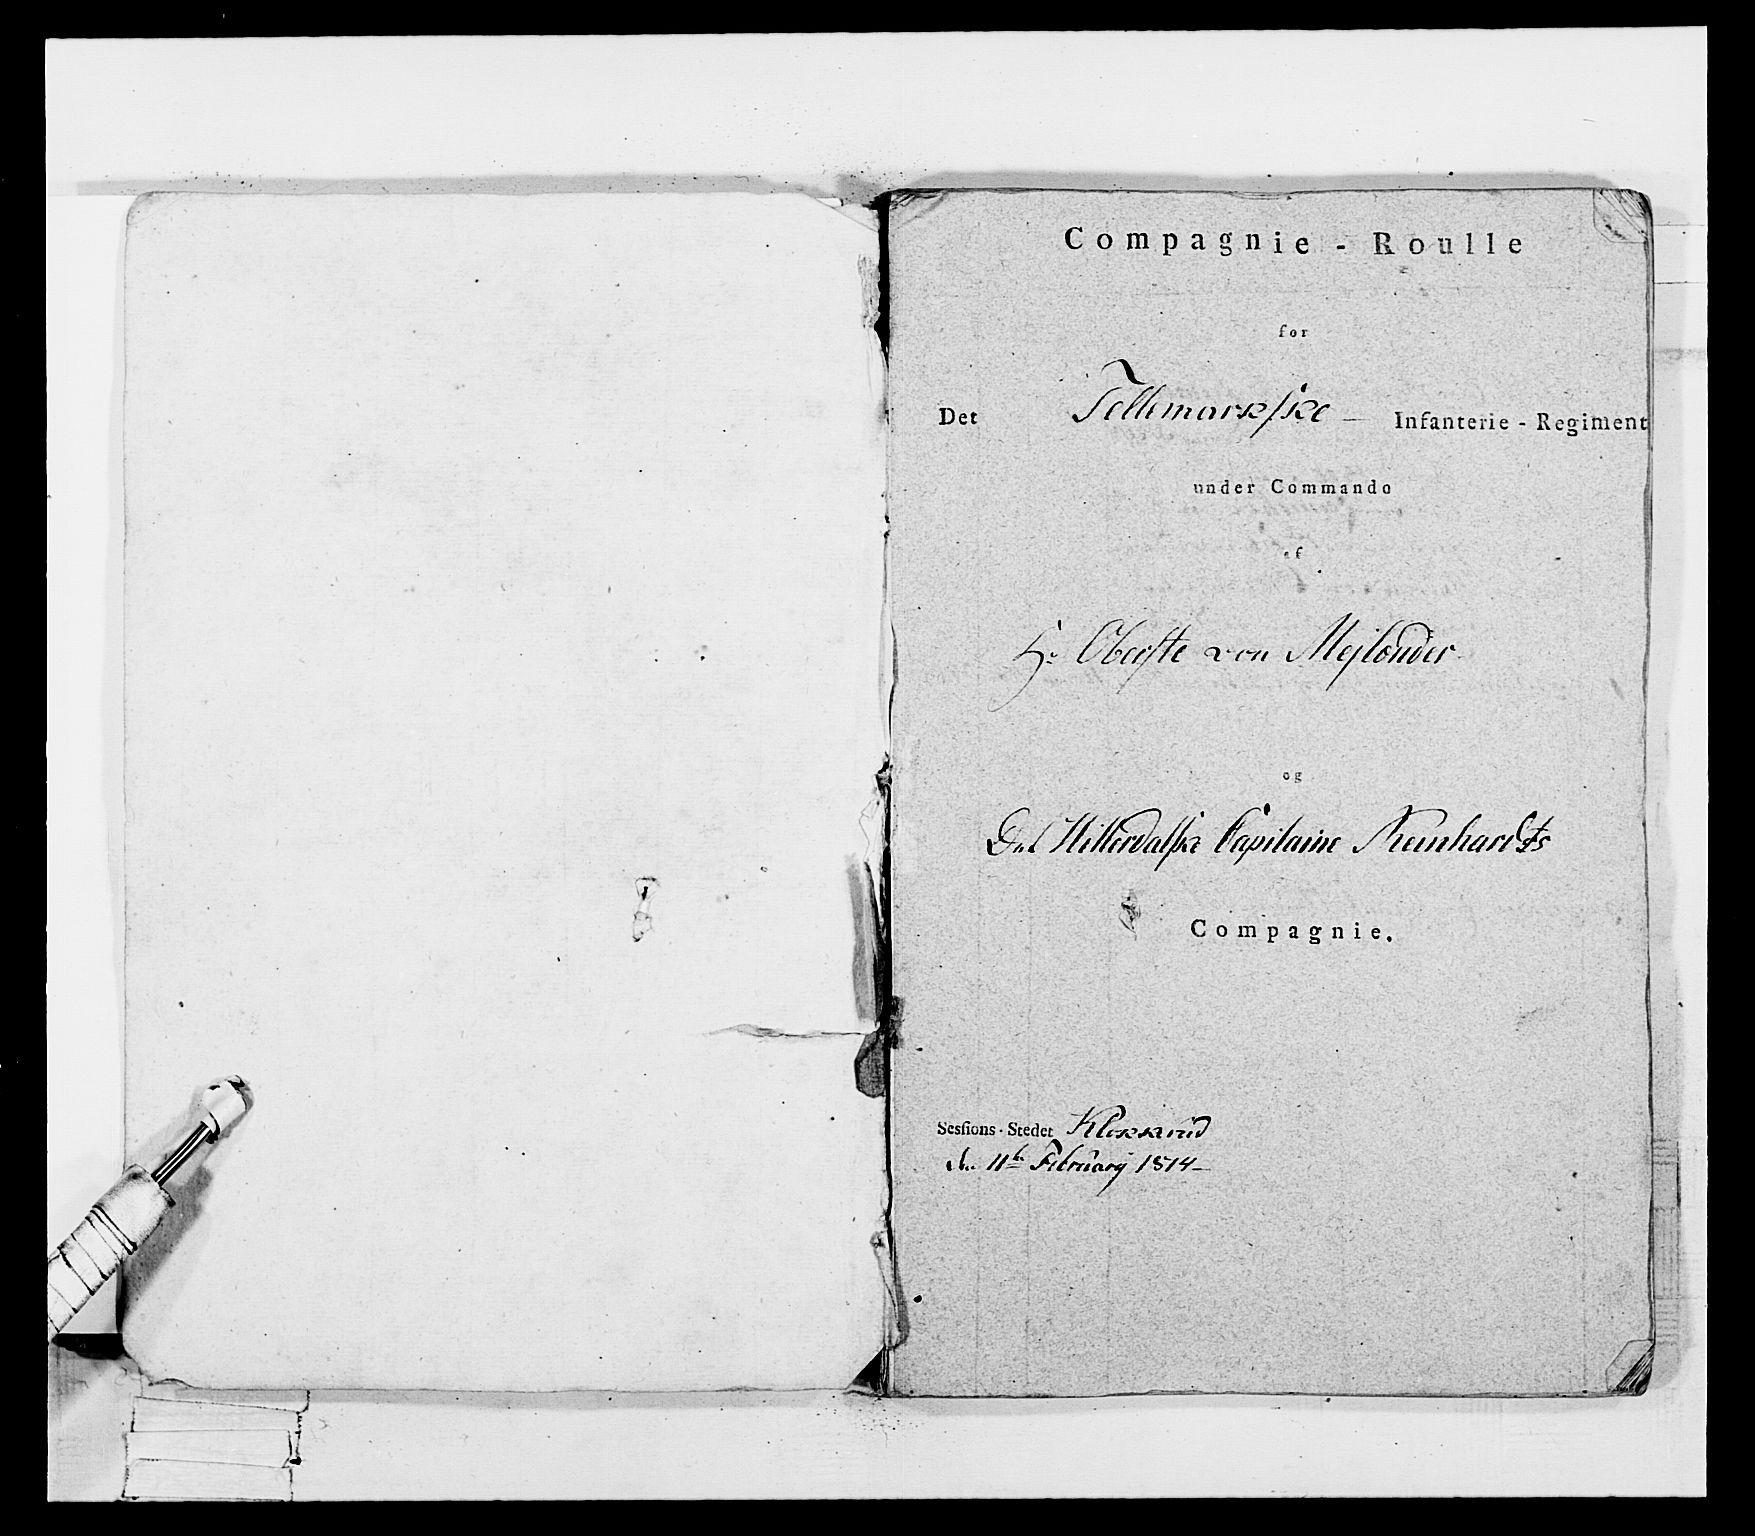 Compagnie - Roulle
for
Det Tellemarkske — Infanterie - Regiment
under Commando
af
Hr Oberste von Mejlænder
og
Det Hitterdalske Capitaine Reinhardts
Compagnie.
Sessions-Stedet Kleekaasa
den 11te February 1814—